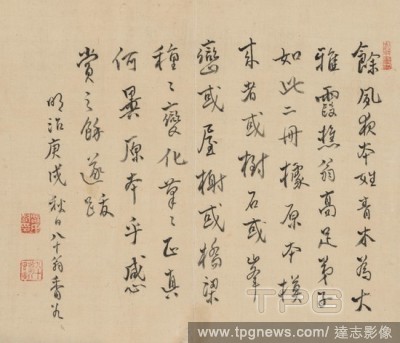 餘夙夜本姓青木為大
雅霞樵翁高足弟子
如此二冊據原本模
来者或樹石或峯
巒或屋榭或橋梁
種々變化筆々正真
何異原本乎感
賞之餘遂跋
明治庚戌秋日八十翁香
TPG
www.tpgnews.com/達志影像